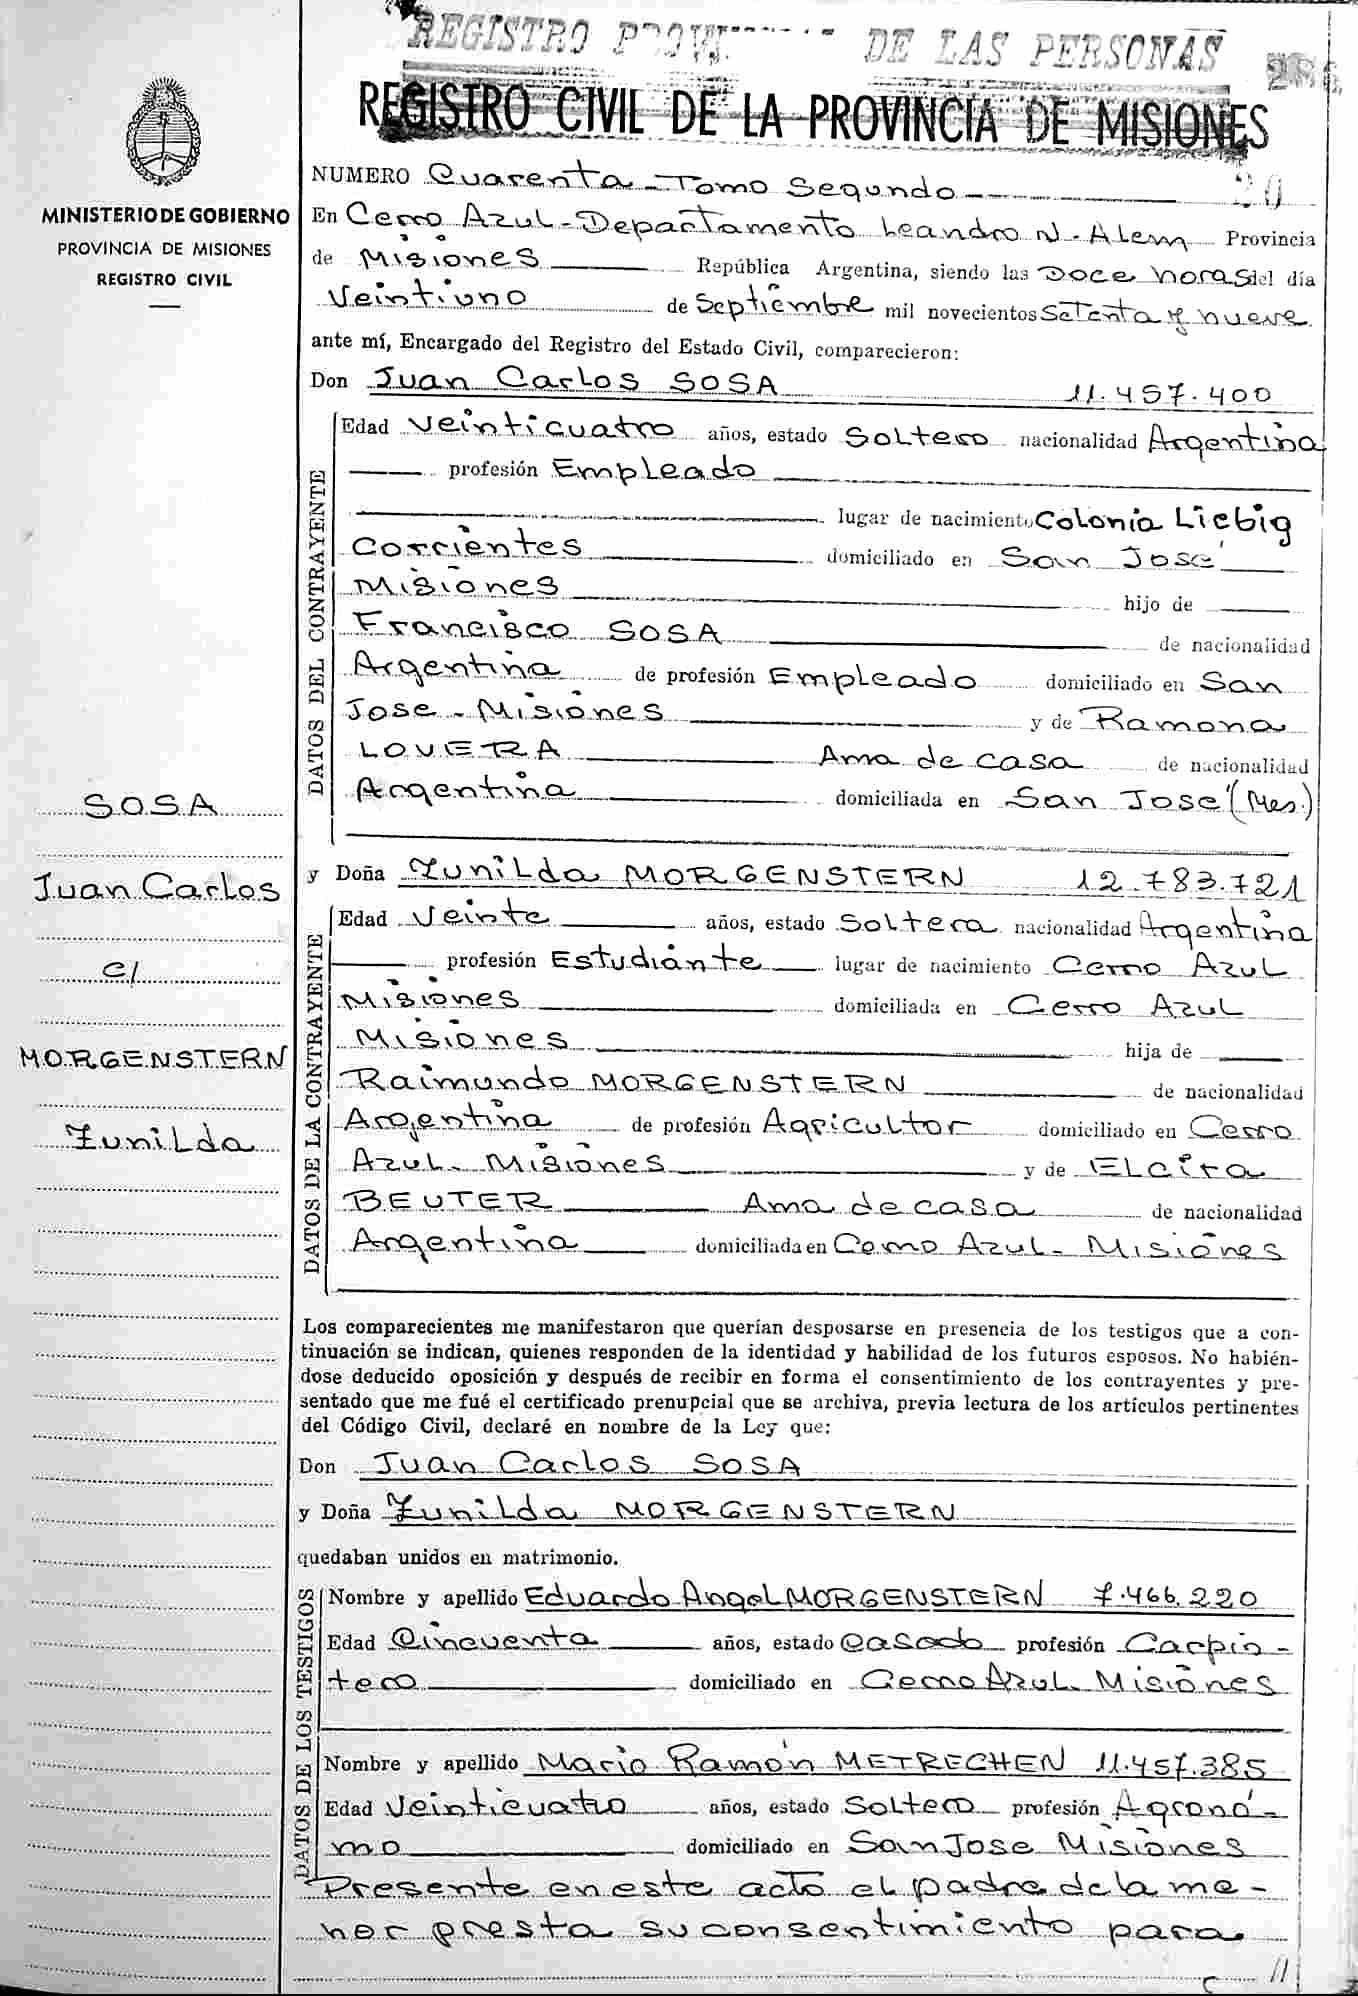 REGISTRO DE LAS PERSONAS
REGISTRO CIVIL DE LA PROVINCIA DE MISIONES
MINISTERIO DE GOBIERNO
PROVINCIA DE MISIONES
REGISTRO CIVIL
SOSA
Juan Carlos
c/
MORGENSTERN
Zunilda
NUMERO Cuarenta - Tomo Segundo - 20
En Cerro Azul - Departamento Leandro N. Alem Provincia
de Misiones República Argentina, siendo las Doce horas del día
Veintiuno de Septiembre mil novecientos Setenta y nueve
ante mí, Encargado del Registro del Estado Civil, comparecieron:
Don Juan Carlos SOSA 11.457.400
DATOS DEL CONTRAYENTE
Edad Veinticuatro años, estado Soltero nacionalidad Argentina
profesión Empleado
lugar de nacimiento Colonia Liebig
Corrientes domiciliado en San José
Misiones hijo de
Francisco SOSA de nacionalidad
Argentina de profesión Empleado domiciliado en San
Jose - Misiones y de Ramona
LOVERA Ama de casa de nacionalidad
Argentina domiciliada en San José (Mes.)
y Doña Zunilda MORGENSTERN 12.783.721
DATOS DE LA CONTRAYENTE
Edad Veinte años, estado Soltera nacionalidad Argentina
profesión Estudiante lugar de nacimiento Cerro Azul
Misiones domiciliada en Cerro Azul
Misiones hija de
Raimundo MORGENSTERN de nacionalidad
Argentina de profesión Agricultor domiciliado en Cerro
Azul - Misiones y de Elcira
BEUTER Ama de casa de nacionalidad
Argentina domiciliada en Cerro Azul - Misiones
Los comparecientes me manifestaron que querían desposarse en presencia de los testigos que a con-
tinuación se indican, quienes responden de la identidad y habilidad de los futuros esposos. No habién-
dose deducido oposición y después de recibir en forma el consentimiento de los contrayentes y pre-
sentado que me fué el certificado prenupcial que se archiva, previa lectura de los artículos pertinentes
del Código Civil, declaré en nombre de la Ley que:
Don Juan Carlos SOSA
y Doña Zunilda MORGENSTERN
quedaban unidos en matrimonio.
DATOS DE LOS TESTIGOS
Nombre y apellido Eduardo Angel MORGENSTERN 7.466.220
Edad Cincuenta años, estado Casado profesión Carpin-
tero domiciliado en Cerro Azul - Misiones
Nombre y apellido Mario Ramón METRECHEN 11.457.385
Edad Veinticuatro años, estado Soltero profesión Agronó-
mo domiciliado en San Jose Misiones
Presente en este acto el padre de la me-
nor presta su consentimiento para
//